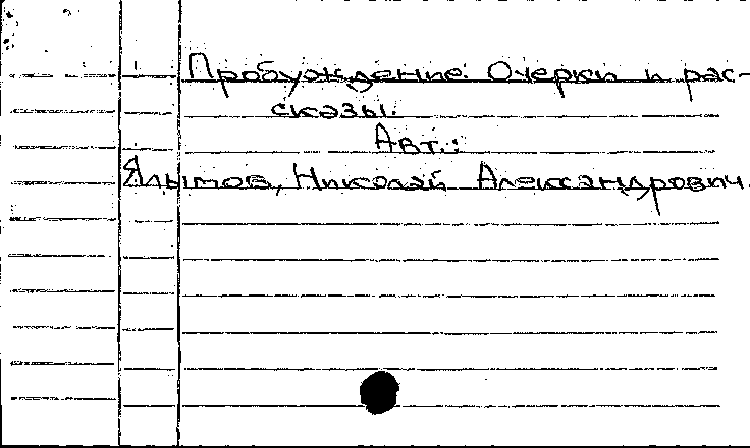 Пробуждение. Очерки и рас-
сказы.
Авт.:
Ялымов, Николай Александрович.